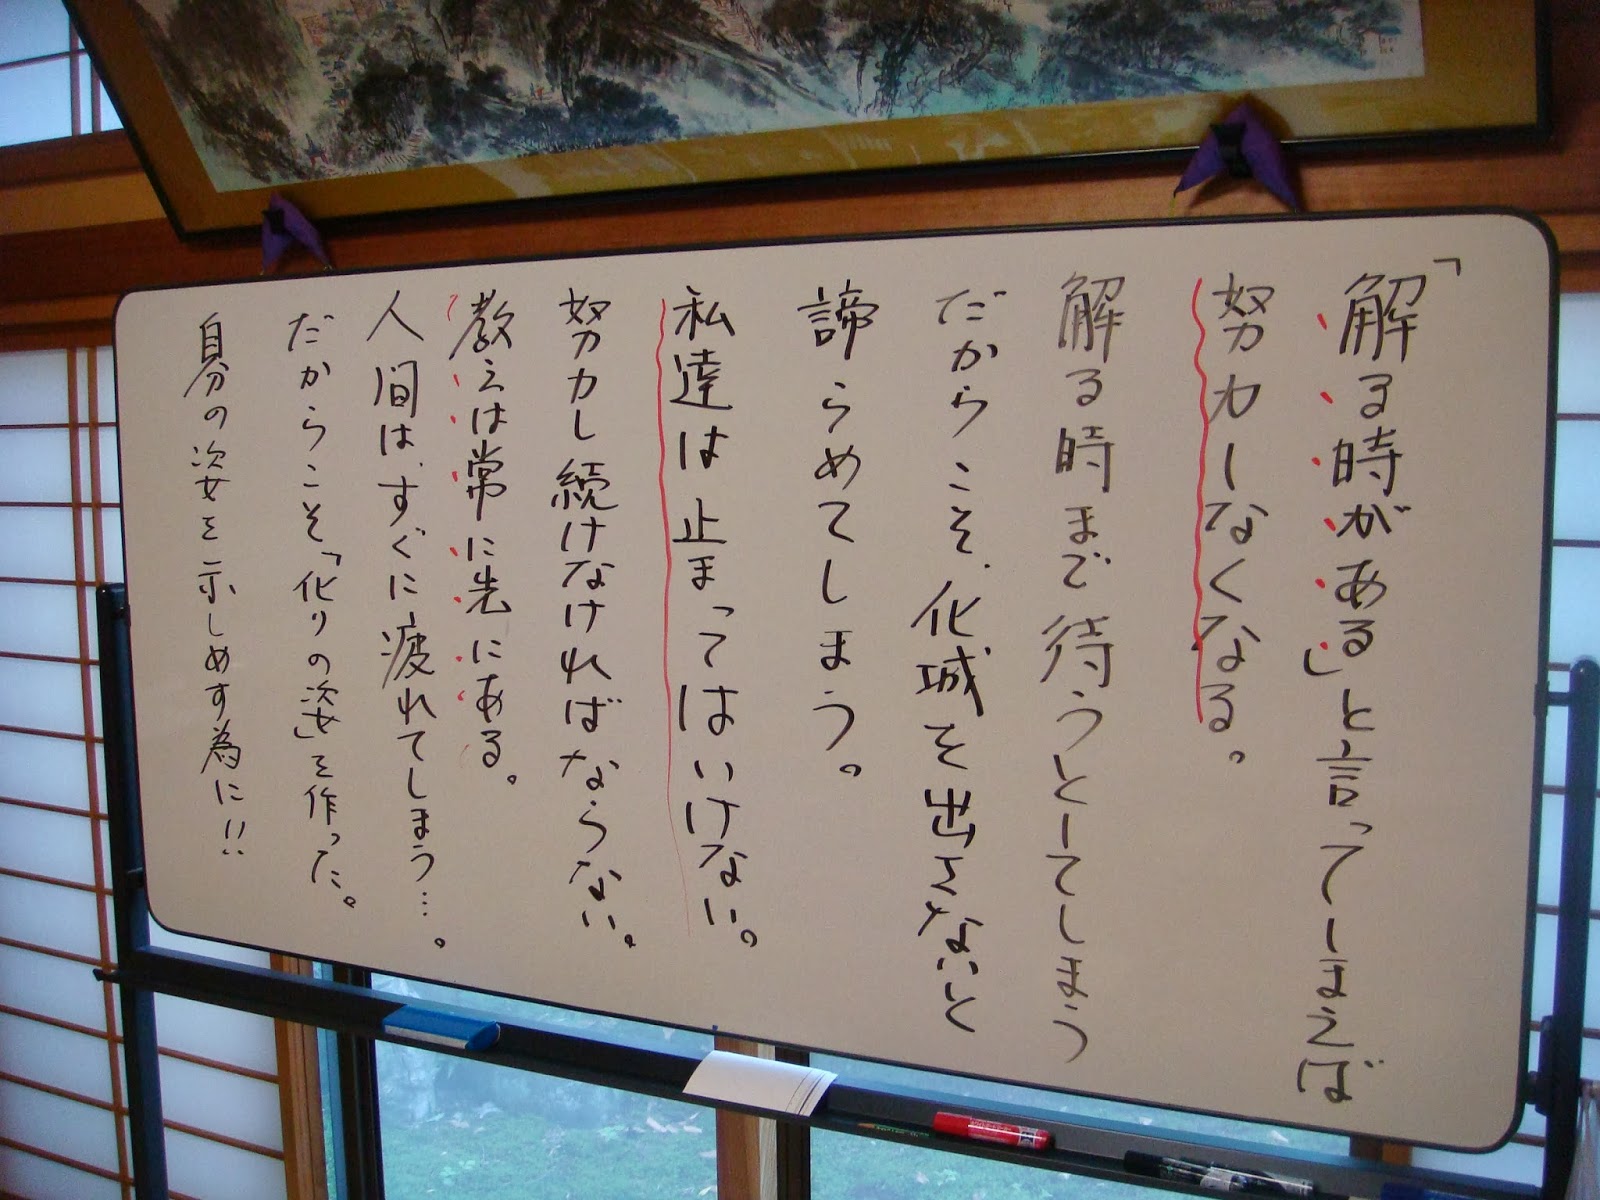 「解る時がある」と言ってしまえば
努力しなくなる。
解る時まで待うとしてしまう
だからこそ、化城を出さないと
諦らめてしまう。
私達は止まってはいけない。
努力し続けなければならない。
教えは常に先にある。
人間は、すぐに疲れてしまう…。
だからこそ「化りの姿」を作った。
自分の姿を示しめす為に!!